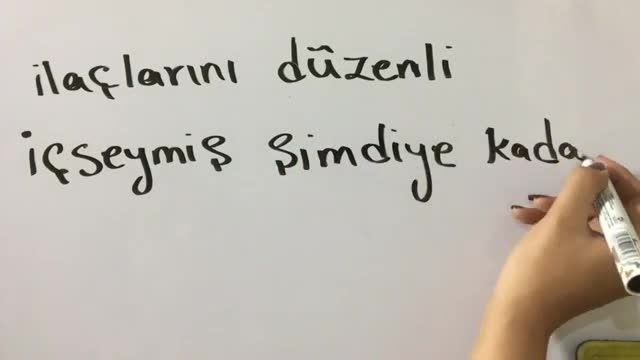 ilaçlarını düzenli
içseymiş şimdiye kada